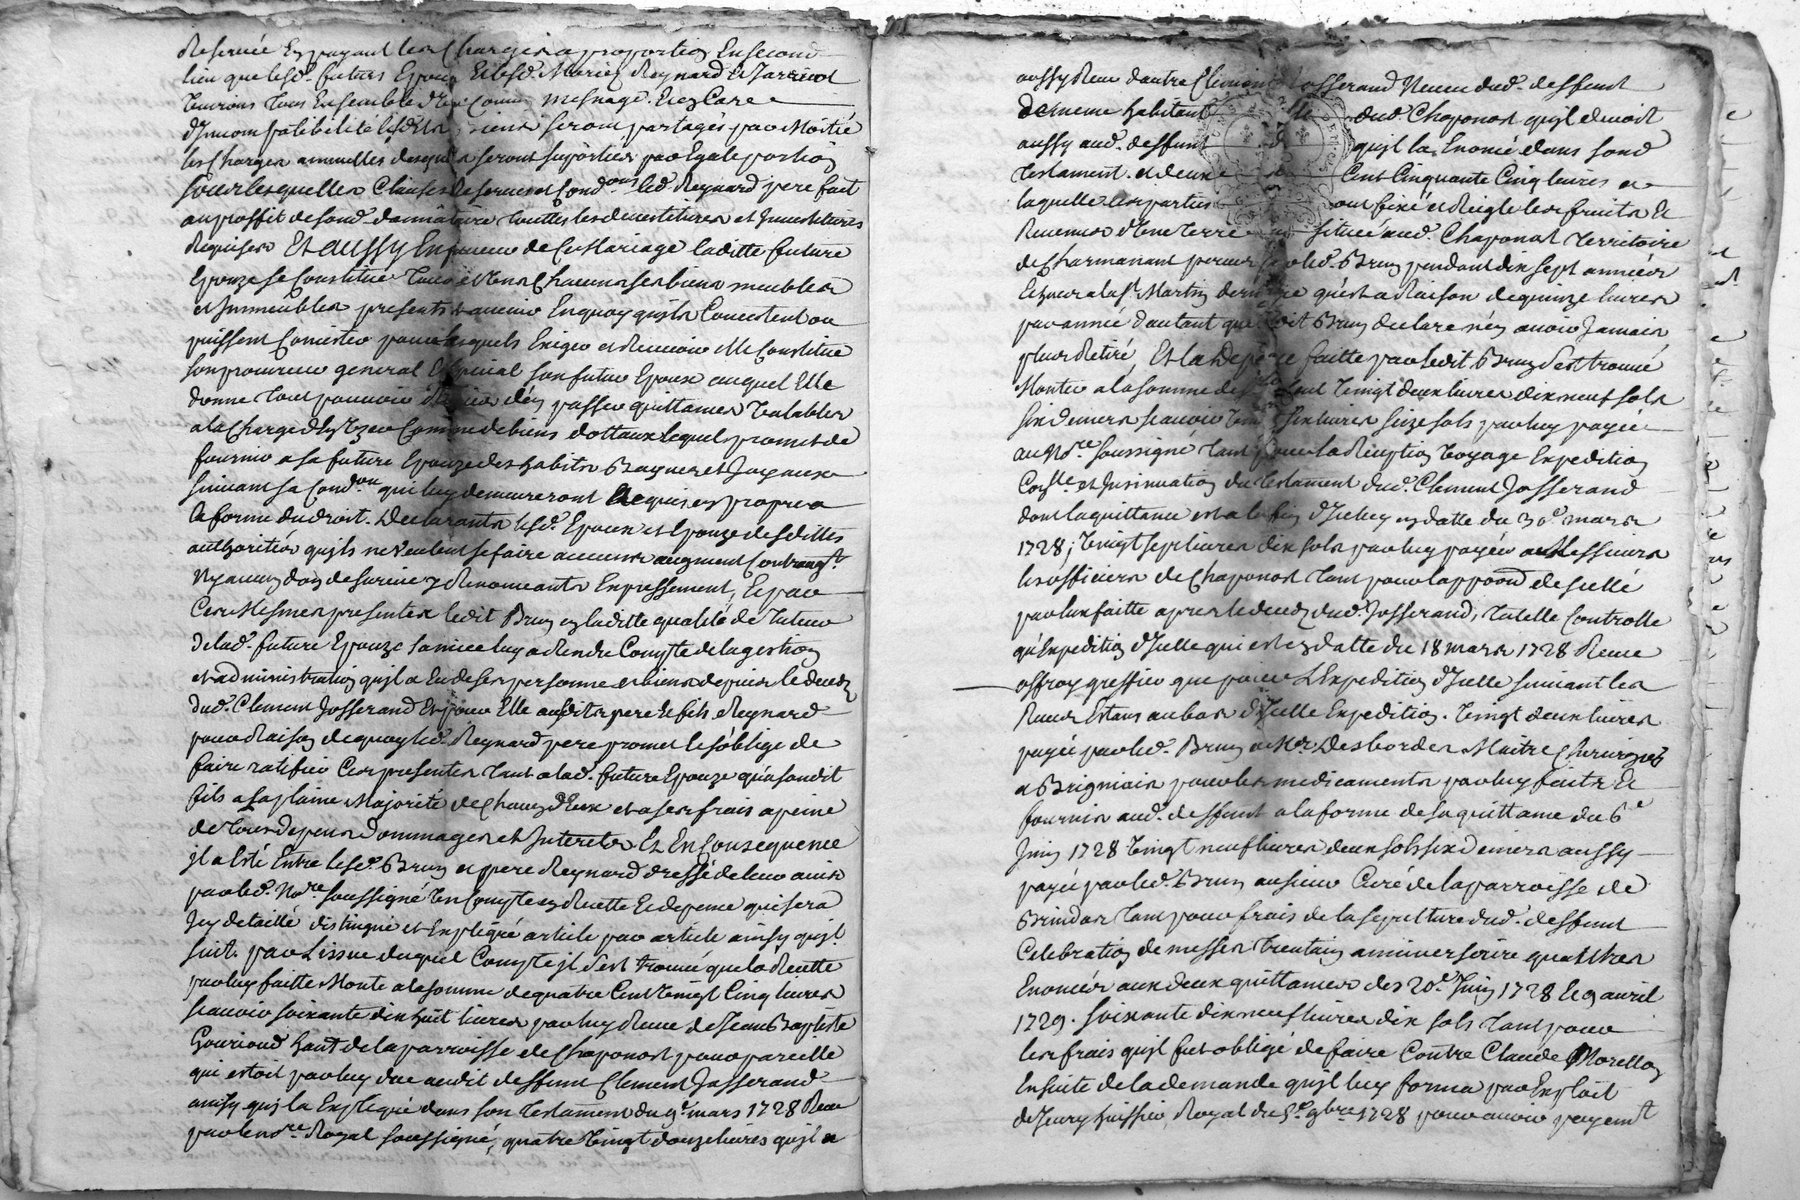 Reservée En payant les Charges a proportion En second
lieu que lesd. futurs Epoux Et lesd. Mariez Reynard et Jarricot
vivrons tous Ensemble d'un Comun mesnage. En Cas
d'Incompatibilité lesdits biens seront partagés par Moitié
les Charges annuelles desquels seront suportées par Egale portion
sous lesquelles Clauses Reserves et Cond.ons led. Reynard pere fait
au proffit de sond. donnataire touttes les devestitures et Investitures
Requises Et aussy En faveur de Ce Mariage laditte future
Epouze se Constitue tous et uns Chacuns ses biens meubles
et Immeubles presents et avenir En quoy qu'ils Consistent ou
puissent Consister pour lesquels Exiger et Recevoir elle Constitue
son procureur general Especial son futur Epoux auquel Elle
donne tout pouvoir d'En passer quittances valables
a la Charge d'En user Comme de biens dottaux lequel promet de
fournir a sa future Epouze des habits Bagues et Joyaux
suivant sa Cond.on qui luy demeureront acquis en propre a
la forme du droit. Declarants lesd. Epoux et Epouze desdittes
authorités qu'ils ne veulent se faire aucuns augment
ny aucun don de survie y Renonceants Expressement, Et par
Ces Mesmes presentes ledit Brun en laditte qualité de Tuteur
de lad. future Epouze sa niece luy a Rendu Compte de la gestion
et administration qu'il a Eu de ses personne et biens depuis le decedz
dud. Clement Josserand Et pour Elle ausdits pere et fils Reynard
pour Raison de quoy led. Reynard pere promet et s'oblige de
faire ratifier Ces presentes tant a lad. future Epouze qu'a sondit
fils a la plaine Majorité de Chacun d'Eux et a ses frais a peine
de tous depens dommages et Interets Et En Consequence
il a Esté Entre lesd. Brun et pere Reynard dressé de leur avis
par led. No.re soussigné un Compte en Recette Et depense qui sera
Icy detaillé distingué et Expliqué article par article ainsy qu'il
suit. par L'issue duquel Compte il s'est trouvé que la Recette
par luy faitte Monte a la somme de quatre Cent vingt Cinq livres
scavoir soixante dix huit livres par luy Reçue de Jean Baptiste
Gouriond hant de la parroisse de Chaponost pour pareille
qui estoit par luy due audit deffunt Clement Josserand
ainsy qu'il la Expliqué dans son testament du 9e mars 1728 Receu
par le no.re Royal soussigné, quatre vingt douze livres qu'il a
aussy Reçu d'autre Clement Josserand Neveu dud. deffunt
de meme habitant dud. Chaponost qu'il devoit
aussy aud. deffunt qu'il la Enoncé dans sond
testament. et deux Cent Cinquante Cinq livres a
laquelle les parties ont fixé et Reiglé les fruits Et
Revenus d'une terre situé aud. Chaponost territoire
de Charmanant perçus par led. Brun pendant dix sept années
Echues a la St. Martin derniere qu'est a Raison de quinze livres
par année d'autant que ledit Brun declare n'en avoir Jamais
plus Retiré, Et la Depense faitte par ledit Brun s'est trouvé
Monter a la somme de Cent vingt deux livres dix neuf sols
six deniers scavoir vingt six livres seize sols par luy payée
au No.re soussigné tant pour la Reception voyage Expedition
Con.lle et Insinuation du testament dud. Clement Josserand
dont la quittance est a la fin d'Iceluy en datte du 30e mars
1728; vingt sept livres dix sols par luy payée a Messieurs
les officiers de Chaponost tant pour l'appoon de scellé
par Eux faitte apres le decedz dud. Josserand, Tutelle Controlle
qu'Expedition d'Icelle qui est en datte du 18 mars 1728 Reçue
offray greffier que pour L'Expedition d'Icelle suivant les
Receus Estans au bas d'Icelle Expedition. Vingt deux livres
payée par led. Brun a Mr. Desbordes Maitre Chirurgien
a Brignais pour les medicaments par luy faits Et
fournis aud. deffunt a la forme de sa quittance du 6e
Juin 1728 Vingt neuf livres deux sols six deniers aussy
payée par led. Brun au sieur Curé de la parroisse de
Brindas tant pour frais de la sepulture dud. deffunt
Celebration de messes trentain anniversaire qu'autres
Enoncés aux deux quittances des 20e Juin 1728 Et 9 avril
1729. soixante dix neuf livres dix sols tant pour
les frais qu'il fut obligé de faire Contre Claude Morellon
Ensuite de la demande qu'il luy forma par Exploit
de Jeury huissier Royal du 5e 9bre 1728 pour avoir payemt